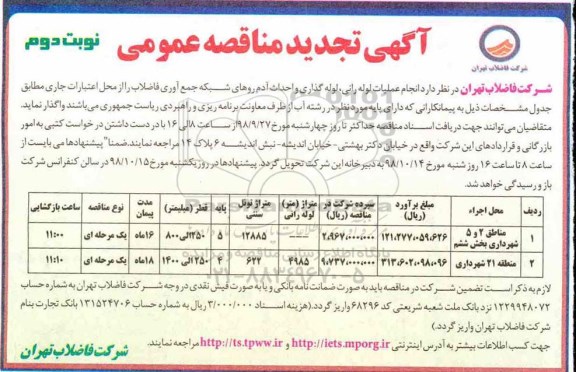 آگهی تجدید مناقصه عمومی
نوبت دوم
شرکت فاضلاب تهران
شرکت فاضلاب تهران در نظر دارد انجام عملیات لوله رانی، لوله گذاری و احداث آدم روهای شبکه جمع آوری فاضلاب را از محل اعتبارات جاری مطابق
جدول مشخصات ذیل به پیمانکارانی که دارای پایه مورد نظر در رشته آب از طرف معاونت برنامه ریزی و راهبردی ریاست جمهوری می باشند واگذار نماید.
متقاضیان می توانند جهت دریافت اسناد مناقصه حداکثر تا روز چهار شنبه مورخ ۹۸/۹/۲۷ از ساعت ۸ الی ۱۶ با در دست داشتن درخواست کتبی به امور
بازرگانی و قراردادهای این شرکت واقع در خیابان دکتر بهشتی - خیابان اندیشه - نبش اندیشه ۶ پلاک ۱۴ مراجعه نمایند. ضمنا" پیشنهادها می بایست از
ساعت ۸ تا ساعت ۱۶ روز شنبه مورخ ۹۸/۱۰/۱۴ به دبیرخانه این شرکت تحویل گردد. پیشنهادها در روز یکشنبه مورخ ۹۸/۱۰/۱۵ در سالن کنفرانس شرکت
باز و رسیدگی خواهد شد.
ردیف محل اجراء مبلغ برآورد (ریال) سپرده شرکت در مناقصه (ریال) متراژ (متر) لوله رانی متراژ تونل سنتی پایه قطر (میلیمتر) مدت پیمان نوع مناقصه ساعت بازگشایی
۱ مناطق ۲ و ۵ شهرداری بخش ششم ۱۲۱،۲۷۷،۰۵۹،۶۲۶ ۲،۹۶۷،۰۰۰،۰۰۰ ---- ۱۲۸۸۵ ۵ ۲۵۰ الی ۸۰۰ ۱۶ ماه یک مرحله ای ۱۱:۰۰
۲ منطقه ۲۱ شهرداری ۳۱۳،۶۰۲،۰۹۸،۰۹۶ ۹،۷۳۷،۰۰۰،۰۰۰ ۴۹۸۵ ۶۲۲ ۴ ۲۵۰ الی ۱۴۰۰ ۱۸ ماه یک مرحله ای ۱۱:۱۰
لازم به ذکر است تضمین شرکت در مناقصه باید به صورت ضمانت نامه بانکی و یا به صورت فیش نقدی در وجه شرکت فاضلاب تهران به شماره حساب
۱۲۲۹۹۴۸۰۷۲ نزد بانک ملت شعبه شریعتی کد ۶۸۲۹۶ واریز گردد.(هزینه اسناد ۳/۰۰۰/۰۰۰ ریال به شماره حساب ۱۳۱۵۲۴۷۰۶ بانک تجارت بنام
شرکت فاضلاب تهران واریز گردد.)
جهت کسب اطلاعات بیشتر به آدرس اینترنتی http://iets.mporg.ir و http://ts.tpww.ir مراجعه نمایند.
شرکت فاضلاب تهران